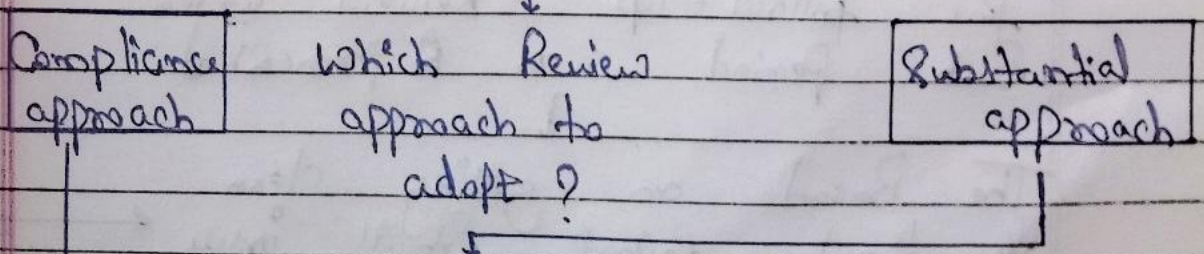 Compliance approach
Which Review approach to adopt ?
Substantial approach